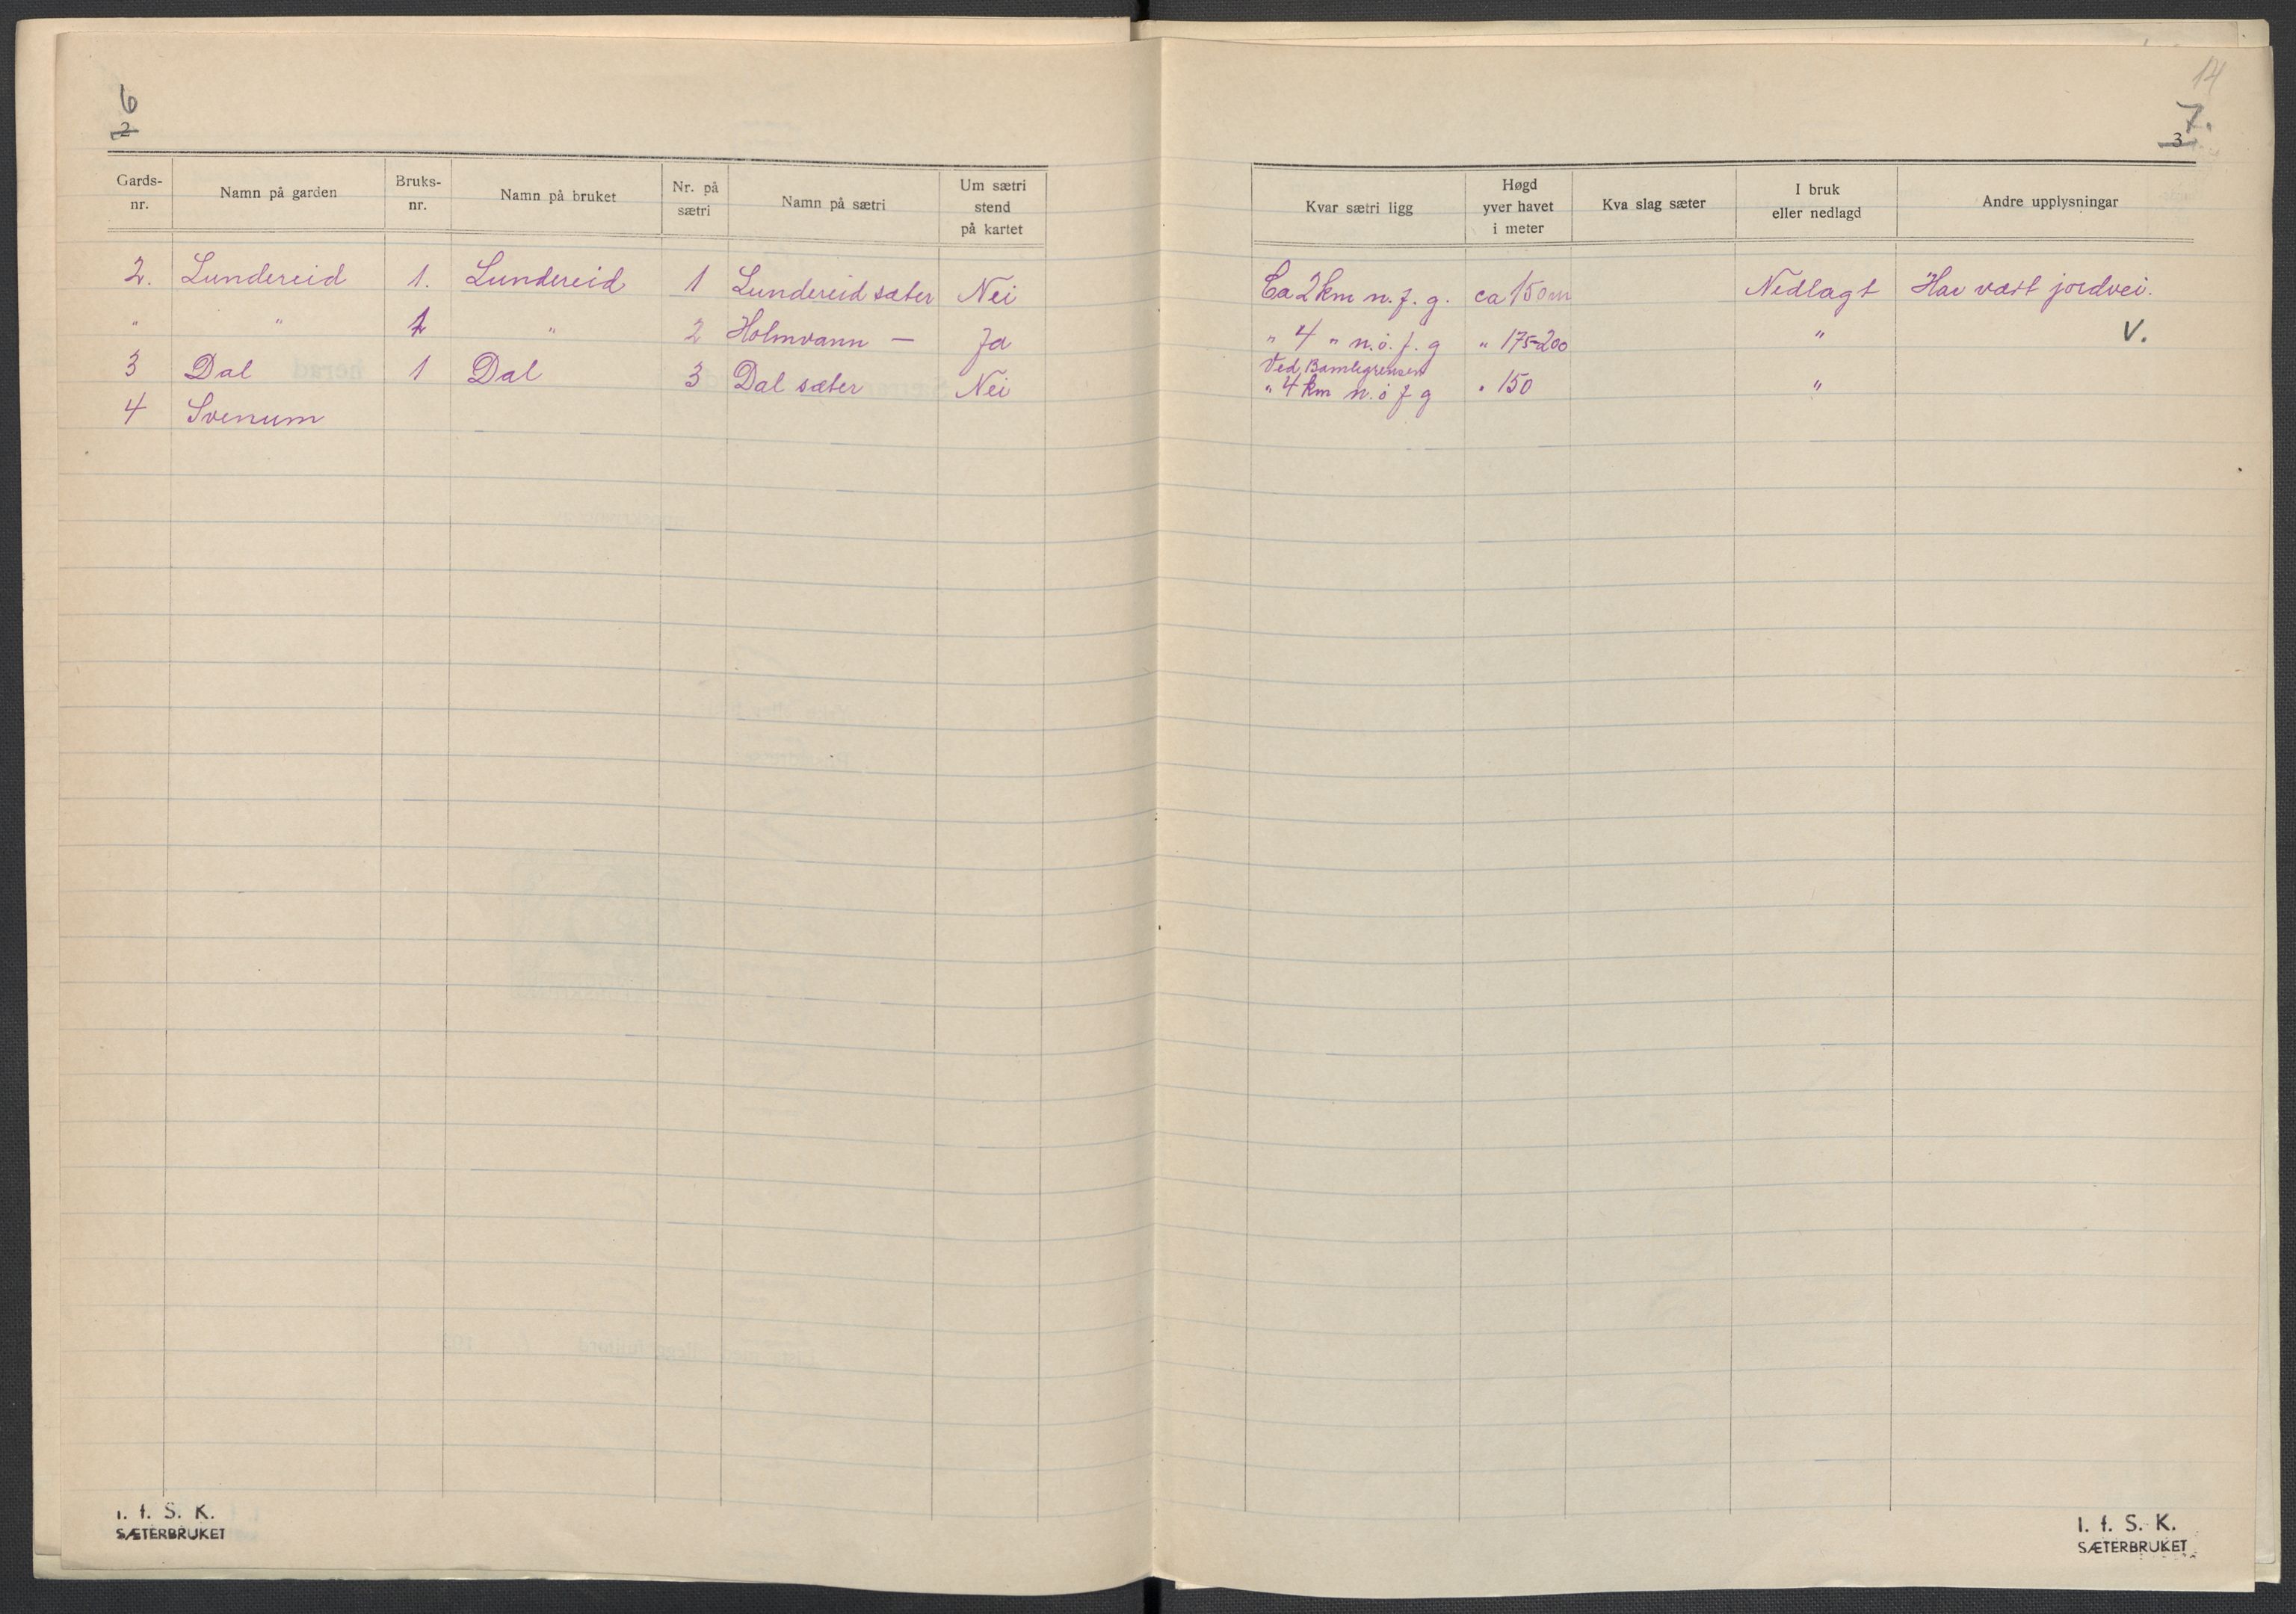 6
2
Gards-nr. Namn på garden Bruks-nr. Namn på bruket Nr. på sætri Namn på sætri Um sætri stend på kartet
2. Lundereid 1. Lundereid 1 Lundereid sæter Nei
" " 2 " 2 Holmvann — Ja
3 Dal 1 Dal 3 Dal sæter Nei
4 Svenum
I. f. S. K.
SÆTERBRUKET
14
7.
3
Kvar sætri ligg Høgd yver havet i meter Kva slag sæter I bruk eller nedlagd Andre upplysningar
Ca 2 km n. f. g. ca 150 m Nedlagt Har vært jordvei.
" 4 " n. ö. f. g " 175-200 " V.
Ved Bamlegrensen
" 4 km n. ö f g " 150 "
I. f. S. K.
SÆTERBRUKET